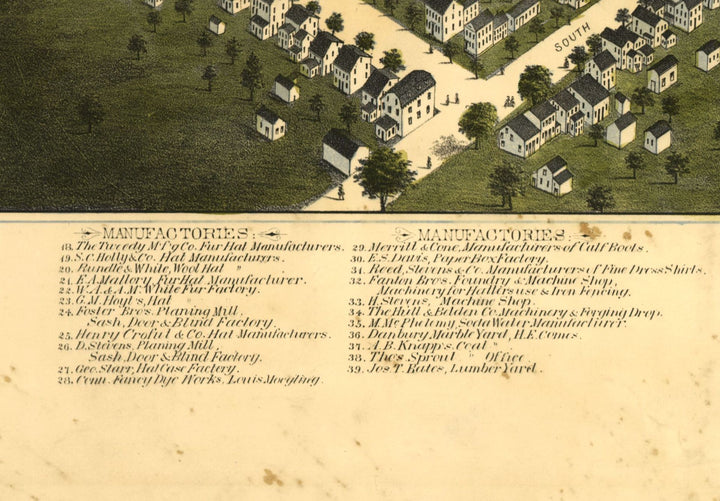 SOUTH
MANUFACTORIES:
18. The Tweedy M'f'g Co. Fur Hat Manufacturers.
19. S.C. Holly & Co. Hat Manufacturers.
20. Rundle & White, Wool Hat "
21. E.A. Mallory, Fur Hat Manufacturer.
22. W.A. & A.M. White Fur Factory.
23. G.M. Hoyt's, Hat "
24. Foster Bro's. Planing Mill.
Sash, Door & Blind Factory.
25. Henry Crofut & Co. Hat Manufacturers.
26. D. Stevens, Planing Mill.
Sash, Door & Blind Factory.
27. Geo. Starr, Hat Case Factory.
28. Conn. Fancy Dye Works, Louis
MANUFACTORIES:
29. Merrill & Cone, Manufacturers of Calf Boots.
30. E.S. Davis, Paper Box Factory.
31. Reed, Stevens & Co. Manufacturers of Fine Dress Shirts.
32. Fanton Bros. Foundry & Machine Shop,
Machinery for Hatters use & Iron Fencing.
33. H. Stevens, Machine Shop.
34. The Hull & Belden Co. Machinery & Forging Drop.
35. M. Mc Phelemy, Soda Water Manufacturer.
36. Danbury Marble Yard, H.E. Comes.
37. A.B. Knapp's, Coal "
38. Tho's Sproul " Office.
39. Jos. T. Bates, Lumber Yard.